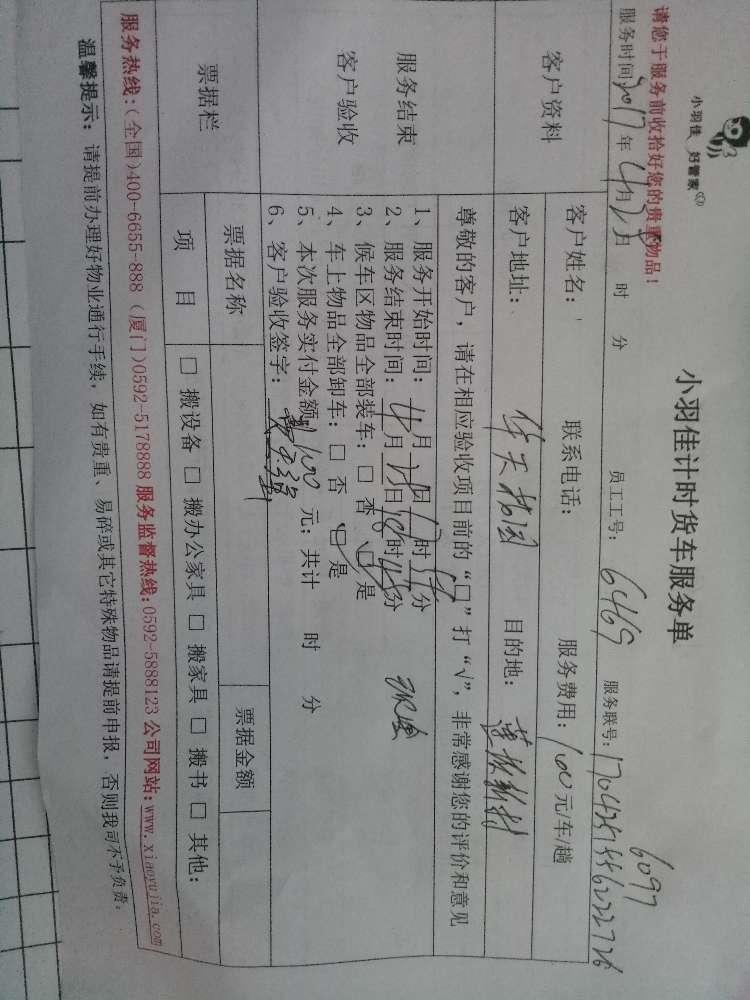 小羽佳 好管家
小羽佳计时货车服务单
请您于服务前收拾好您的贵重物品！
6097
服务时间2017年4月 日 时 分 员工工号：6469 服务联号：
客户资料
客户姓名： 联系电话： 服务费用：100元/车/趟
客户地址： 目的地：莲花新村
服务结束
客户验收
尊敬的客户，请在相应验收项目前的“□”打“√”，非常感谢您的评价和意见
1、服务开始时间：4月 日 时 分
2、服务结束时间：4月 日 时 分
3、候车区物品全部装车：□ 否 □ 是
4、车上物品全部卸车：□ 否 □ 是
5、本次服务实付金额：100元；共计 时 分
6、客户验收签字：
票据栏
票据名称 票据金额
项 目 □ 搬设备 □ 搬办公家具 □ 搬家具 □ 搬书 □ 其他：
服务热线：(全国)400-6655-888 (厦门)0592-5178888 服务监督热线:0592-5888123 公司网站:www.xiaoyujia.com
温馨提示：请提前办理好物业通行手续，如有贵重、易碎或其它特殊物品请提前申报，否则我司不予负责；